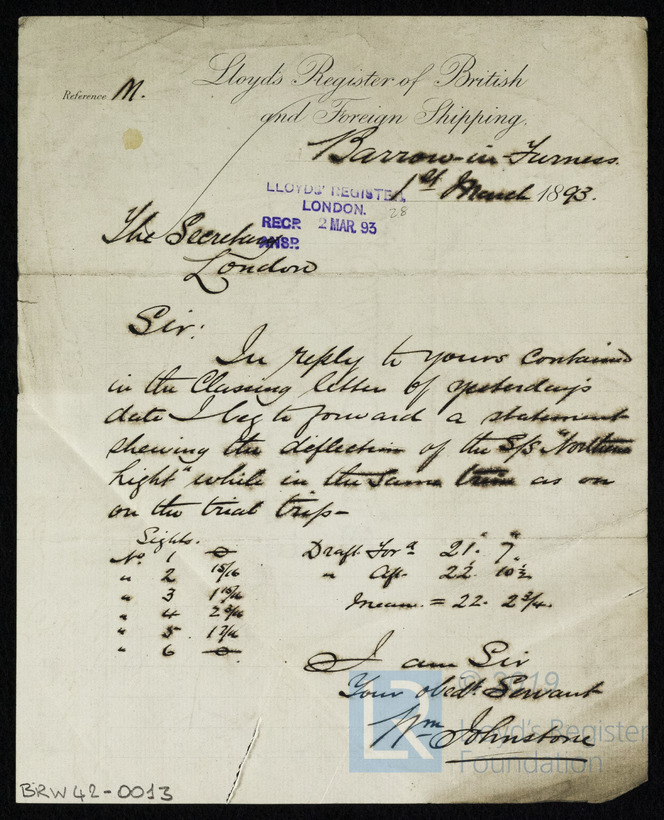 Lloyd's Register of British
and Foreign Shipping.
Reference M.
Barrow-in-Furness.
1st March 1893.
LLOYDS' REGISTER,
LONDON.
28
RECD 2 MAR. 93
ANSD.
The Secretary
London
Sir:
In reply to yours contained
in the Classing letter of yesterday's
date I beg to forward a statement
shewing the deflection of the S/S "Northern
Light" while in the same trim as on
on the trial trip-
Sights.
No 1 0
" 2 15/16
" 3
" 4
" 5
" 6 0
Draft For'd 21' 7"
" Aft. 22' 10½
Mean = 22. 2¾.
I am Sir
Your obedt. Servant
Wm Johnstone
© 2019
LR
Lloyd's Register
Foundation
BRW42-0013